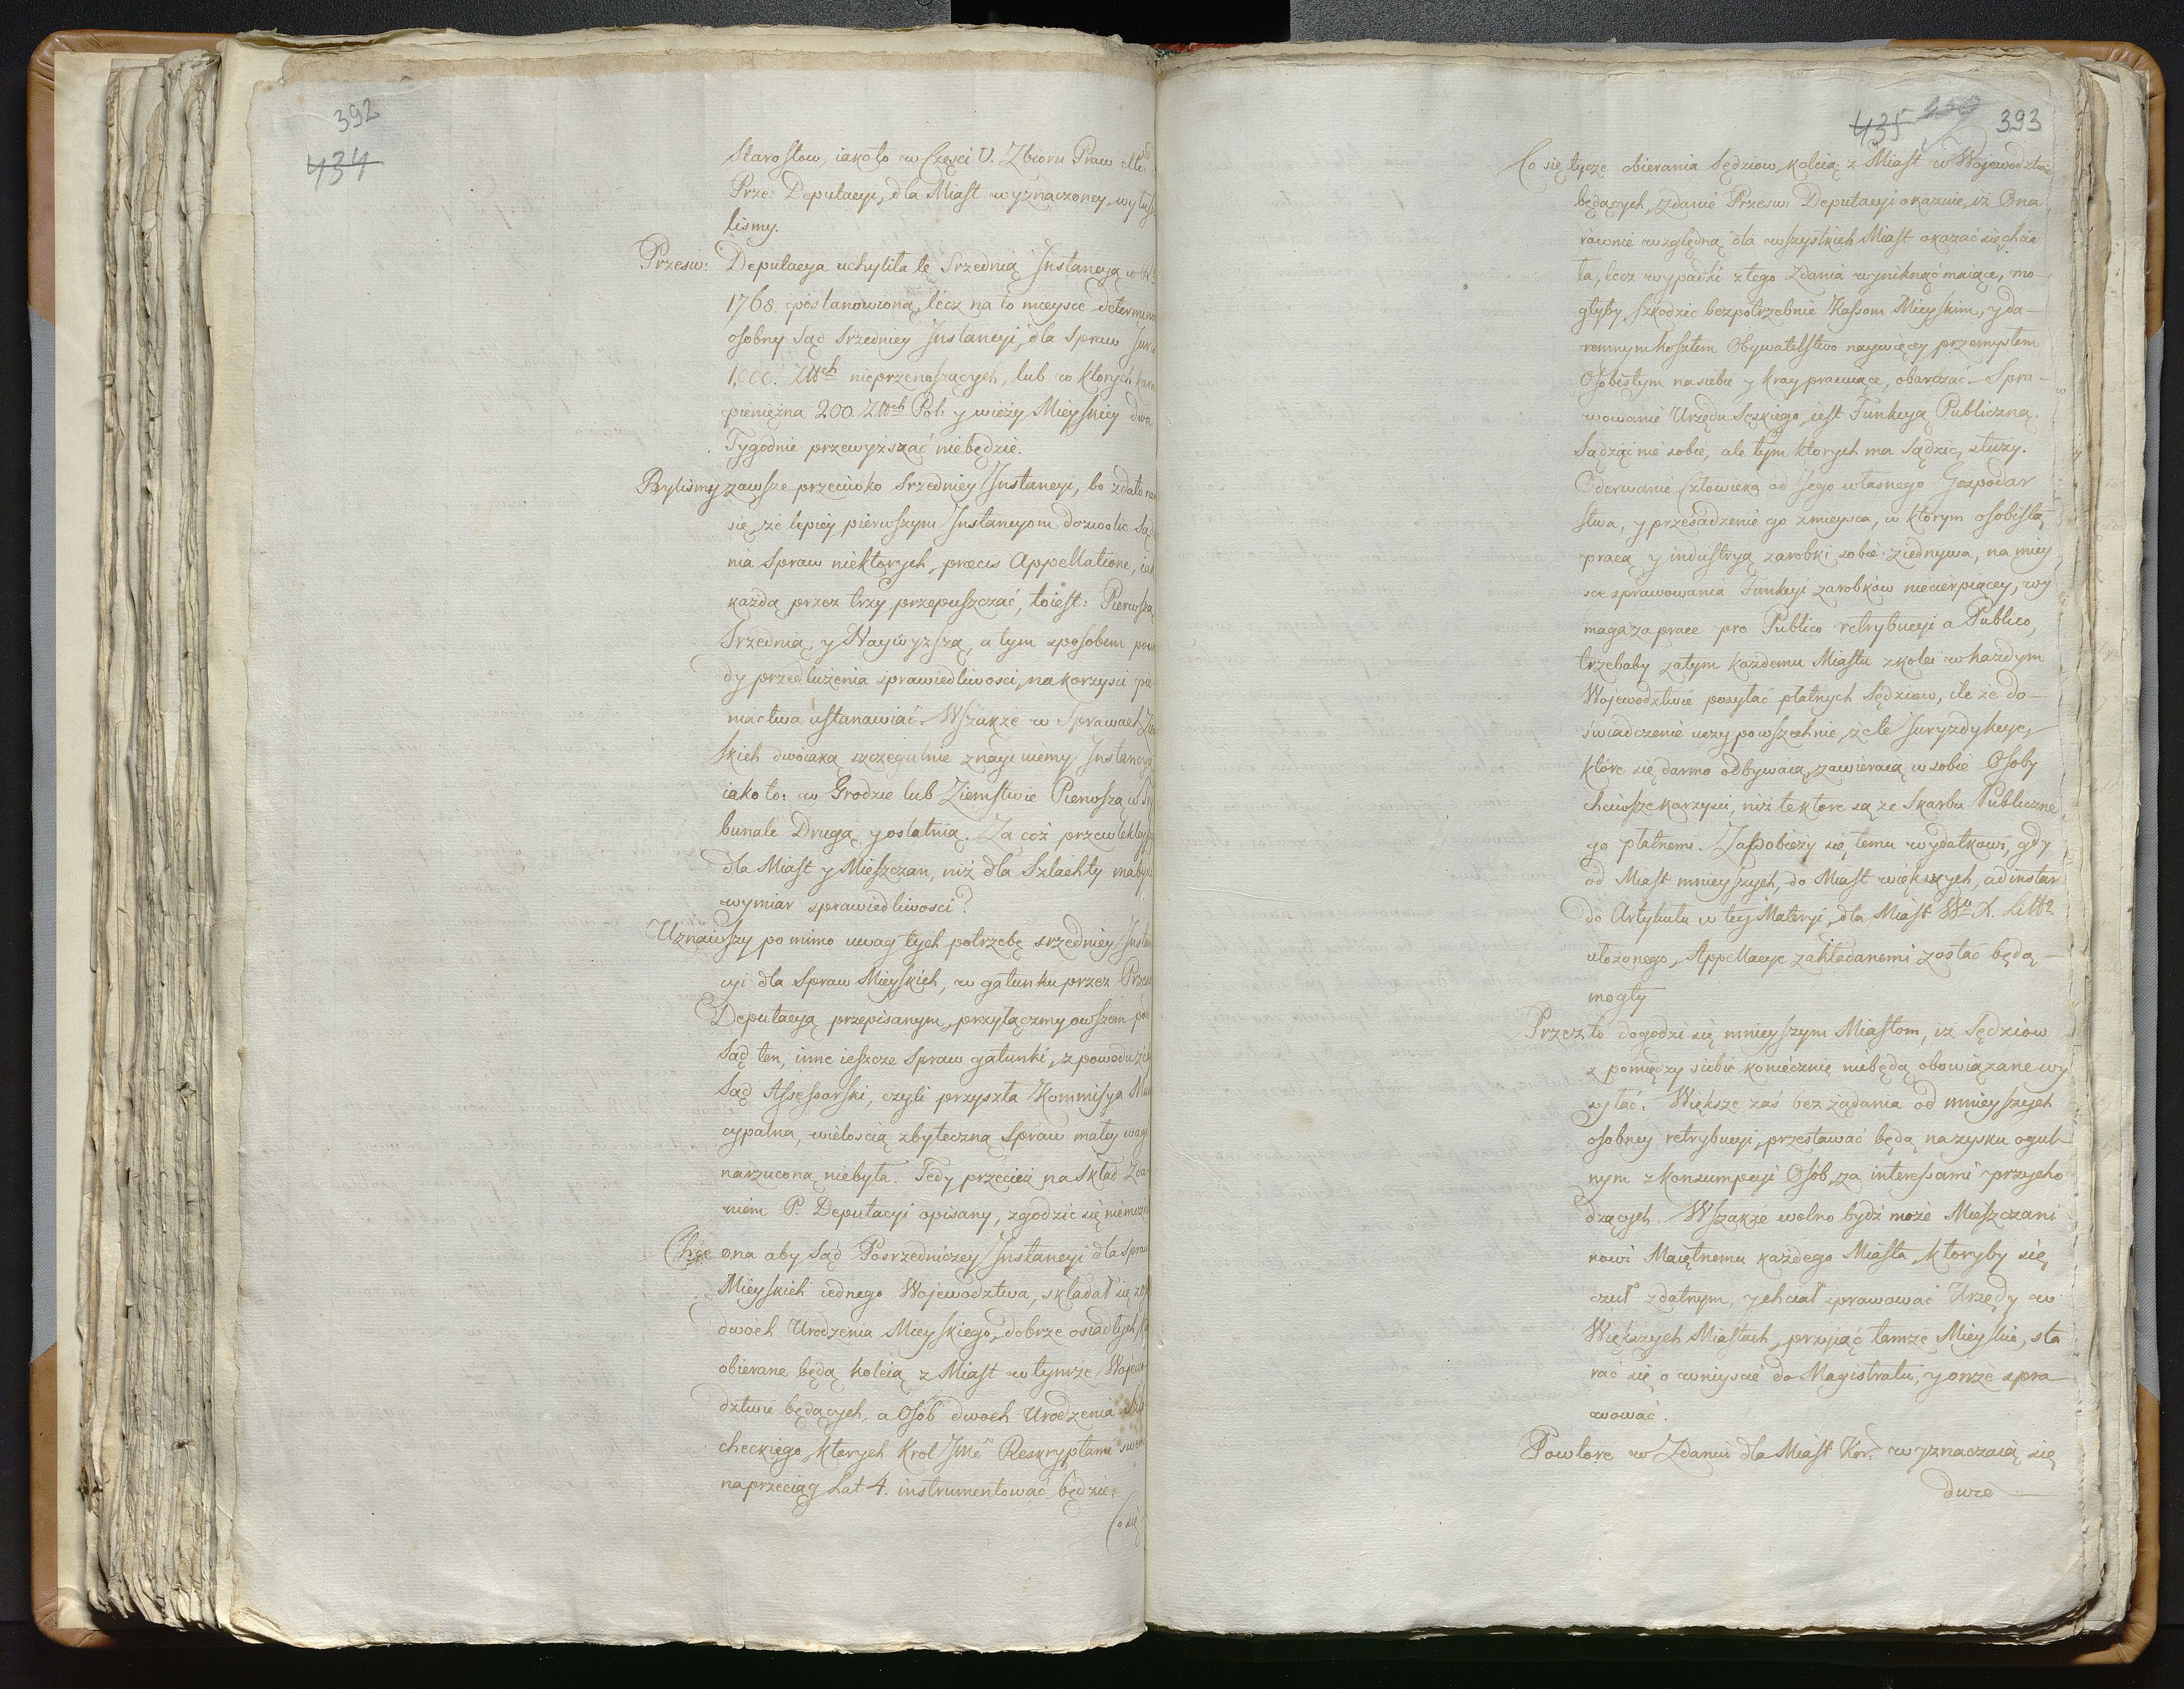 392
434
Starostow, iakoto w Części V. Zbioru Praw
Prze: Deputacyi, dla Miast wyznaczoney, wytusz
lismy.
Przesw: Deputacya uchyliła tę Srzednią Instancyą w
1768. postanowioną, lecz na to mieysce determin
osobny Sąd Srzedniey Instancyi, dla Spraw
1,000. Złłch nieprzenoszących, lub w ktorych kara
pieniężna 200. Złłch Pol: y wieży Mieyskiey dwa
Tygodnie przewyższać niebędzie.
Bylismy zawsze przeciwko Srzedniey Instancyi, bo zdało nam
się, że lepiey pierwszym Instancyom dozwolić Są
nia Spraw niektorych, præcis Appellatione, iak
każdą przez trzy przepuszczać, toiest: Pierwszą
Srzednią, y Naywyzszą, a tym sposobem powo
dy przedłużenia sprawiedliwosci, na korzysci pie
niactwa ustanawiać. Wszakże w Sprawach Ziem
skich dwoiaką szczegulnie znayduiemy Instancyą
iako to: w Grodzie lub Ziemstwie Pierwszą w Try
bunale Drugą y ostatnią. Za coż przewlekleyszy
dla Miast y Mieszczan, niż dla Szlachty ma być
wymiar sprawiedliwosci?
Uznawszy po mimo uwag tych potrzebę srzedniey Instan
cyi dla Spraw Mieyskich, w gatunku przez Przesw
Deputacyą przepisanym, przyłączmy owszem pod
Sąd ten, inne ieszcze Spraw gatunki, z powodu żeb
Sąd Assessorski, czyli przyszła Kommisya Muni
cypalna, wielością zbyteczną Spraw małey wagi
narzucona niebyła. Tedy przecież na skład Zda-
niem P. Deputacyi opisany, zgodzic się niemożem
Chce ona aby Sąd Posrzedniczey Instancyi dla Spraw
Mieyskich iednego Wojewodztwa, składał się z
dwoch Urodzenia Mieyskiego, dobrze osiadłych
obierane będą koleią z Miast w tymże Wojewo
dztwie będących, a Osób dwoch Urodzenia Szla
checkiego, ktorych Krol JMć Reskryptami swem
na przeciąg Lat 4. instrumentować będzie.
Co się
435
393
Co się tycze obierania Sędziow koleią z Miast w Wojewodztwie
będących, zdanie Przesw: Deputacyi okazuie, iż Ona
rownie względną dla wszystkich Miast okazać się chcia
ła, lecz wypadki z tego Zdania wyniknąć maiące, mo-
głyby szkodzic bezpotrzebnie Kassom Mieyskim, y da-
remnym kosztem Obywatelstwo naywięcy przemysłem
Osobistym na siebie y kray pracuiące, obarczać. Spra-
wowanie Urzędu Sęskiego, iest Funkcyą Publiczną.
Sądzić nie sobie, ale tym ktorych ma Sądzić, służy.
Oderwanie człowieka od Jego własnego Gospodar
stwa, y przesadzenie go z mieysca, w ktorym osobistą,
pracą y industryą zarobki sobie ziednywa, na miey
sce sprawowania Funkcyi zarobków niecierpiącey, wy
maga za prace pro Publico retrybucyi a Publico,
trzebaby zatym każdemu Miastu z kolei w każdym
Wojewodztwie posyłać płatnych Sędziow, ile że do-
świadczenie uczy powszechnie, że te Juryzdykcye,
które się darmo odbywaią, zawieraią w sobie Osoby
chciwsze korzysci, niż te ktore są ze Skarbu Publiczne
go płatnemi. Zapobieży się temu wydatkowi, gdy
od Miast mnieyszych, do Miast większych, ad instar
do Artykułu w tey Materyi, dla Miast Wgo X. Littgo
ułożonego, Appellacye zakładanemi zostać będą
mogły
Przez to dogodzi się mnieyszym Miastom, iż Sędziow
z pomiędzy siebie koniecznie niebędą obowiązane wy
syłać. Większe zaś bez żądania od mnieyszych
osobney retrybucyi, przestawać będą na zysku ogul-
nym z konsumpcyi Osób, za interessami przycho
dzących. Wszakże wolno bydź może Mieszczani
nowi Maiętnemu każdego Miasta, ktoryby się
czuł zdatnym, y chciał sprawować Urzędy w
Większych Miastach, przyiąć tamże Mieyskie, sta
rać się o wniyscie do Magistratu, y onże spra-
wować.
Powtore w Zdaniu dla Miast Kor: wyznaczaią się
dwie